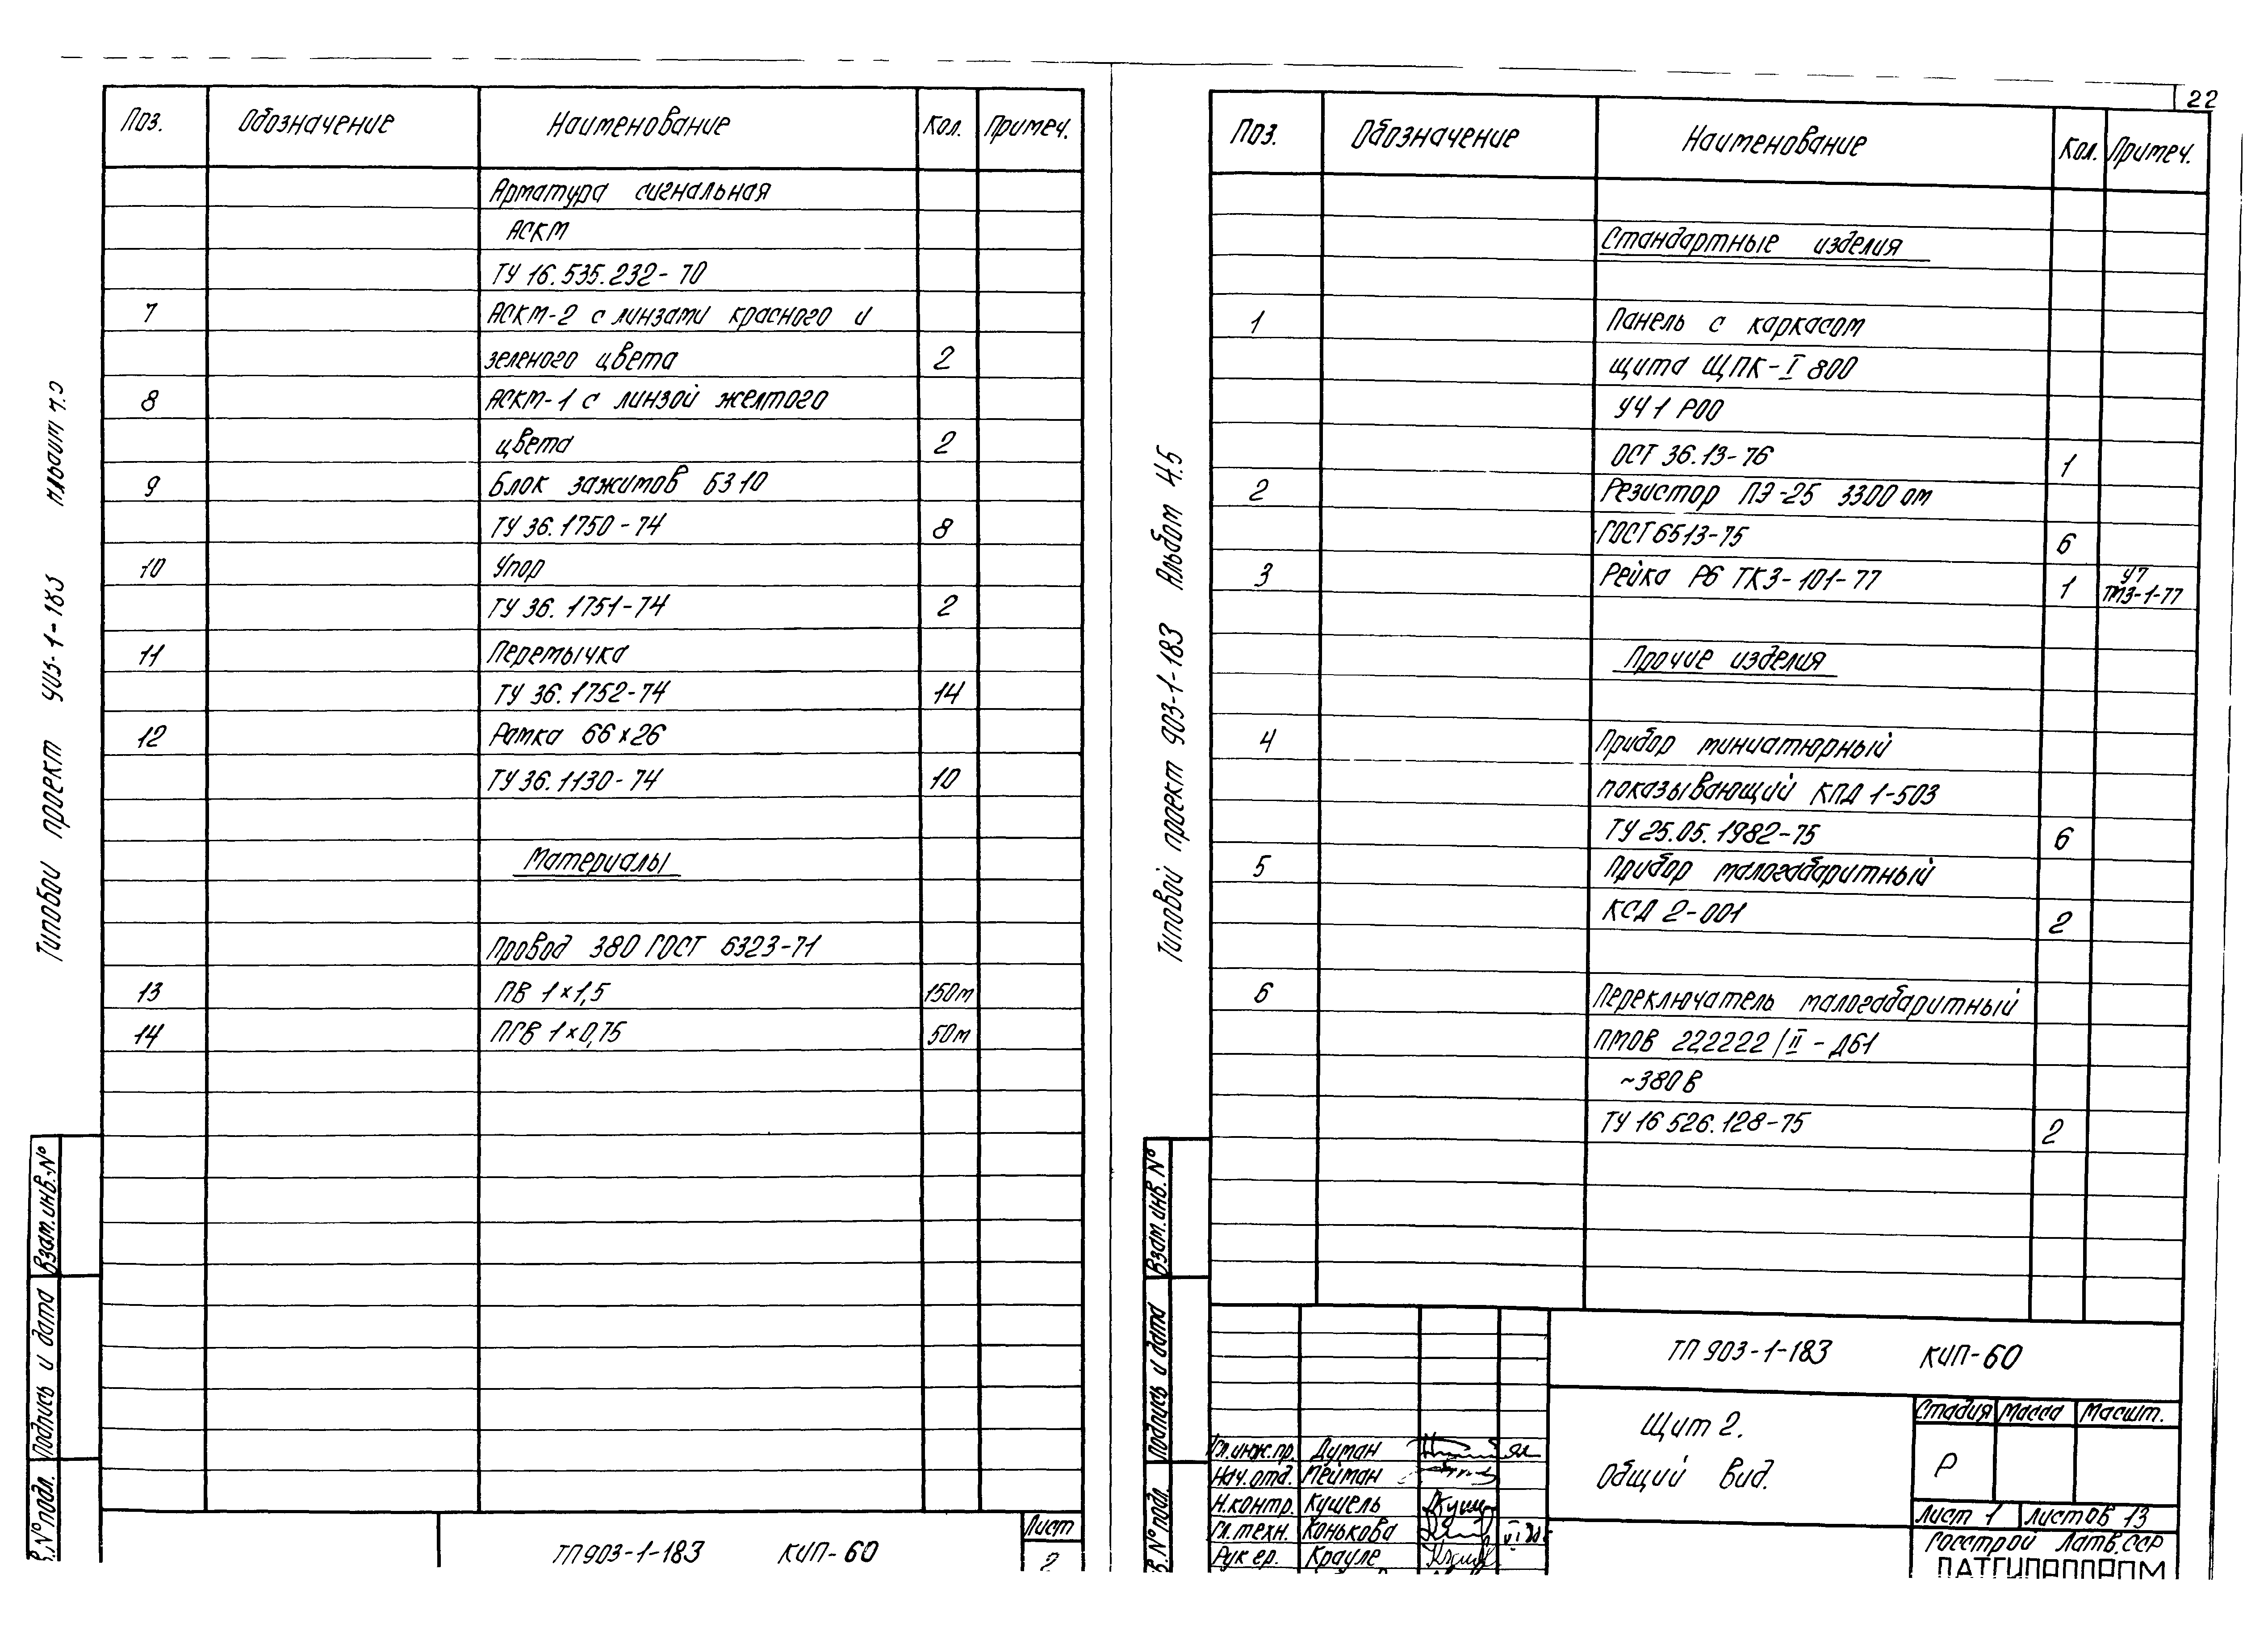 Поз. Обозначение Наименование Кол. Примеч.
Арматура сигнальная
АСКМ
ТУ 16.535.232-70
7 АСКМ-2 с линзами красного и
зеленого цвета 2
8 АСКМ-1 с линзой желтого
цвета 2
9 Блок зажимов БЗ10
ТУ 36.1750-74 8
10 Упор
ТУ 36.1751-74 2
11 Перемычка
ТУ 36.1752-74 14
12 Рамка 66×26
ТУ 36.1130-74 10
Материалы
Провод 380 ГОСТ 6323-71
13 ПВ 1×1,5 150м
14 ПГВ 1×0,75 50м
Типовой проект 903-1-183
Взам.инв.№
Подпись и дата
№ подл.
ТП 903-1-183 КИП-60
Лист
2
22
Поз. Обозначение Наименование Кол. Примеч.
Стандартные изделия
1 Панель с каркасом
щита ЩПК-I 800
УЧ 1 Р00
ОСТ 36.13-76 1
2 Резистор ПЭ-25 3300 ом
ГОСТ 6513-75 6
3 Рейка Р6 ТКЗ-101-77 1 У7
ТМ3-1-77
Прочие изделия
4 Прибор миниатюрный
показывающий КПД 1-503
ТУ 25.05.1982-75 6
5 Прибор малогабаритный
КСД 2-001 2
6 Переключатель малогабаритный
ПМОВ 222222/II-Д61
~380 В
ТУ 16 526.128-75 2
Типовой проект 903-1-183 Альбом 4.5
Взам.инв.№
Подпись и дата
№ подл.
ТП 903-1-183 КИП-60
Щит 2.
Общий вид.
Стадия Масса Масшт.
Р
Лист 1 Листов 13
Госстрой Латв.ССР
ЛАТГИПРОПРОМ
Гл.инж.пр. Думан
Нач.отд. Мейман
Н.контр. Кушель
Гл.техн. Конькова
Рук гр. Крауле